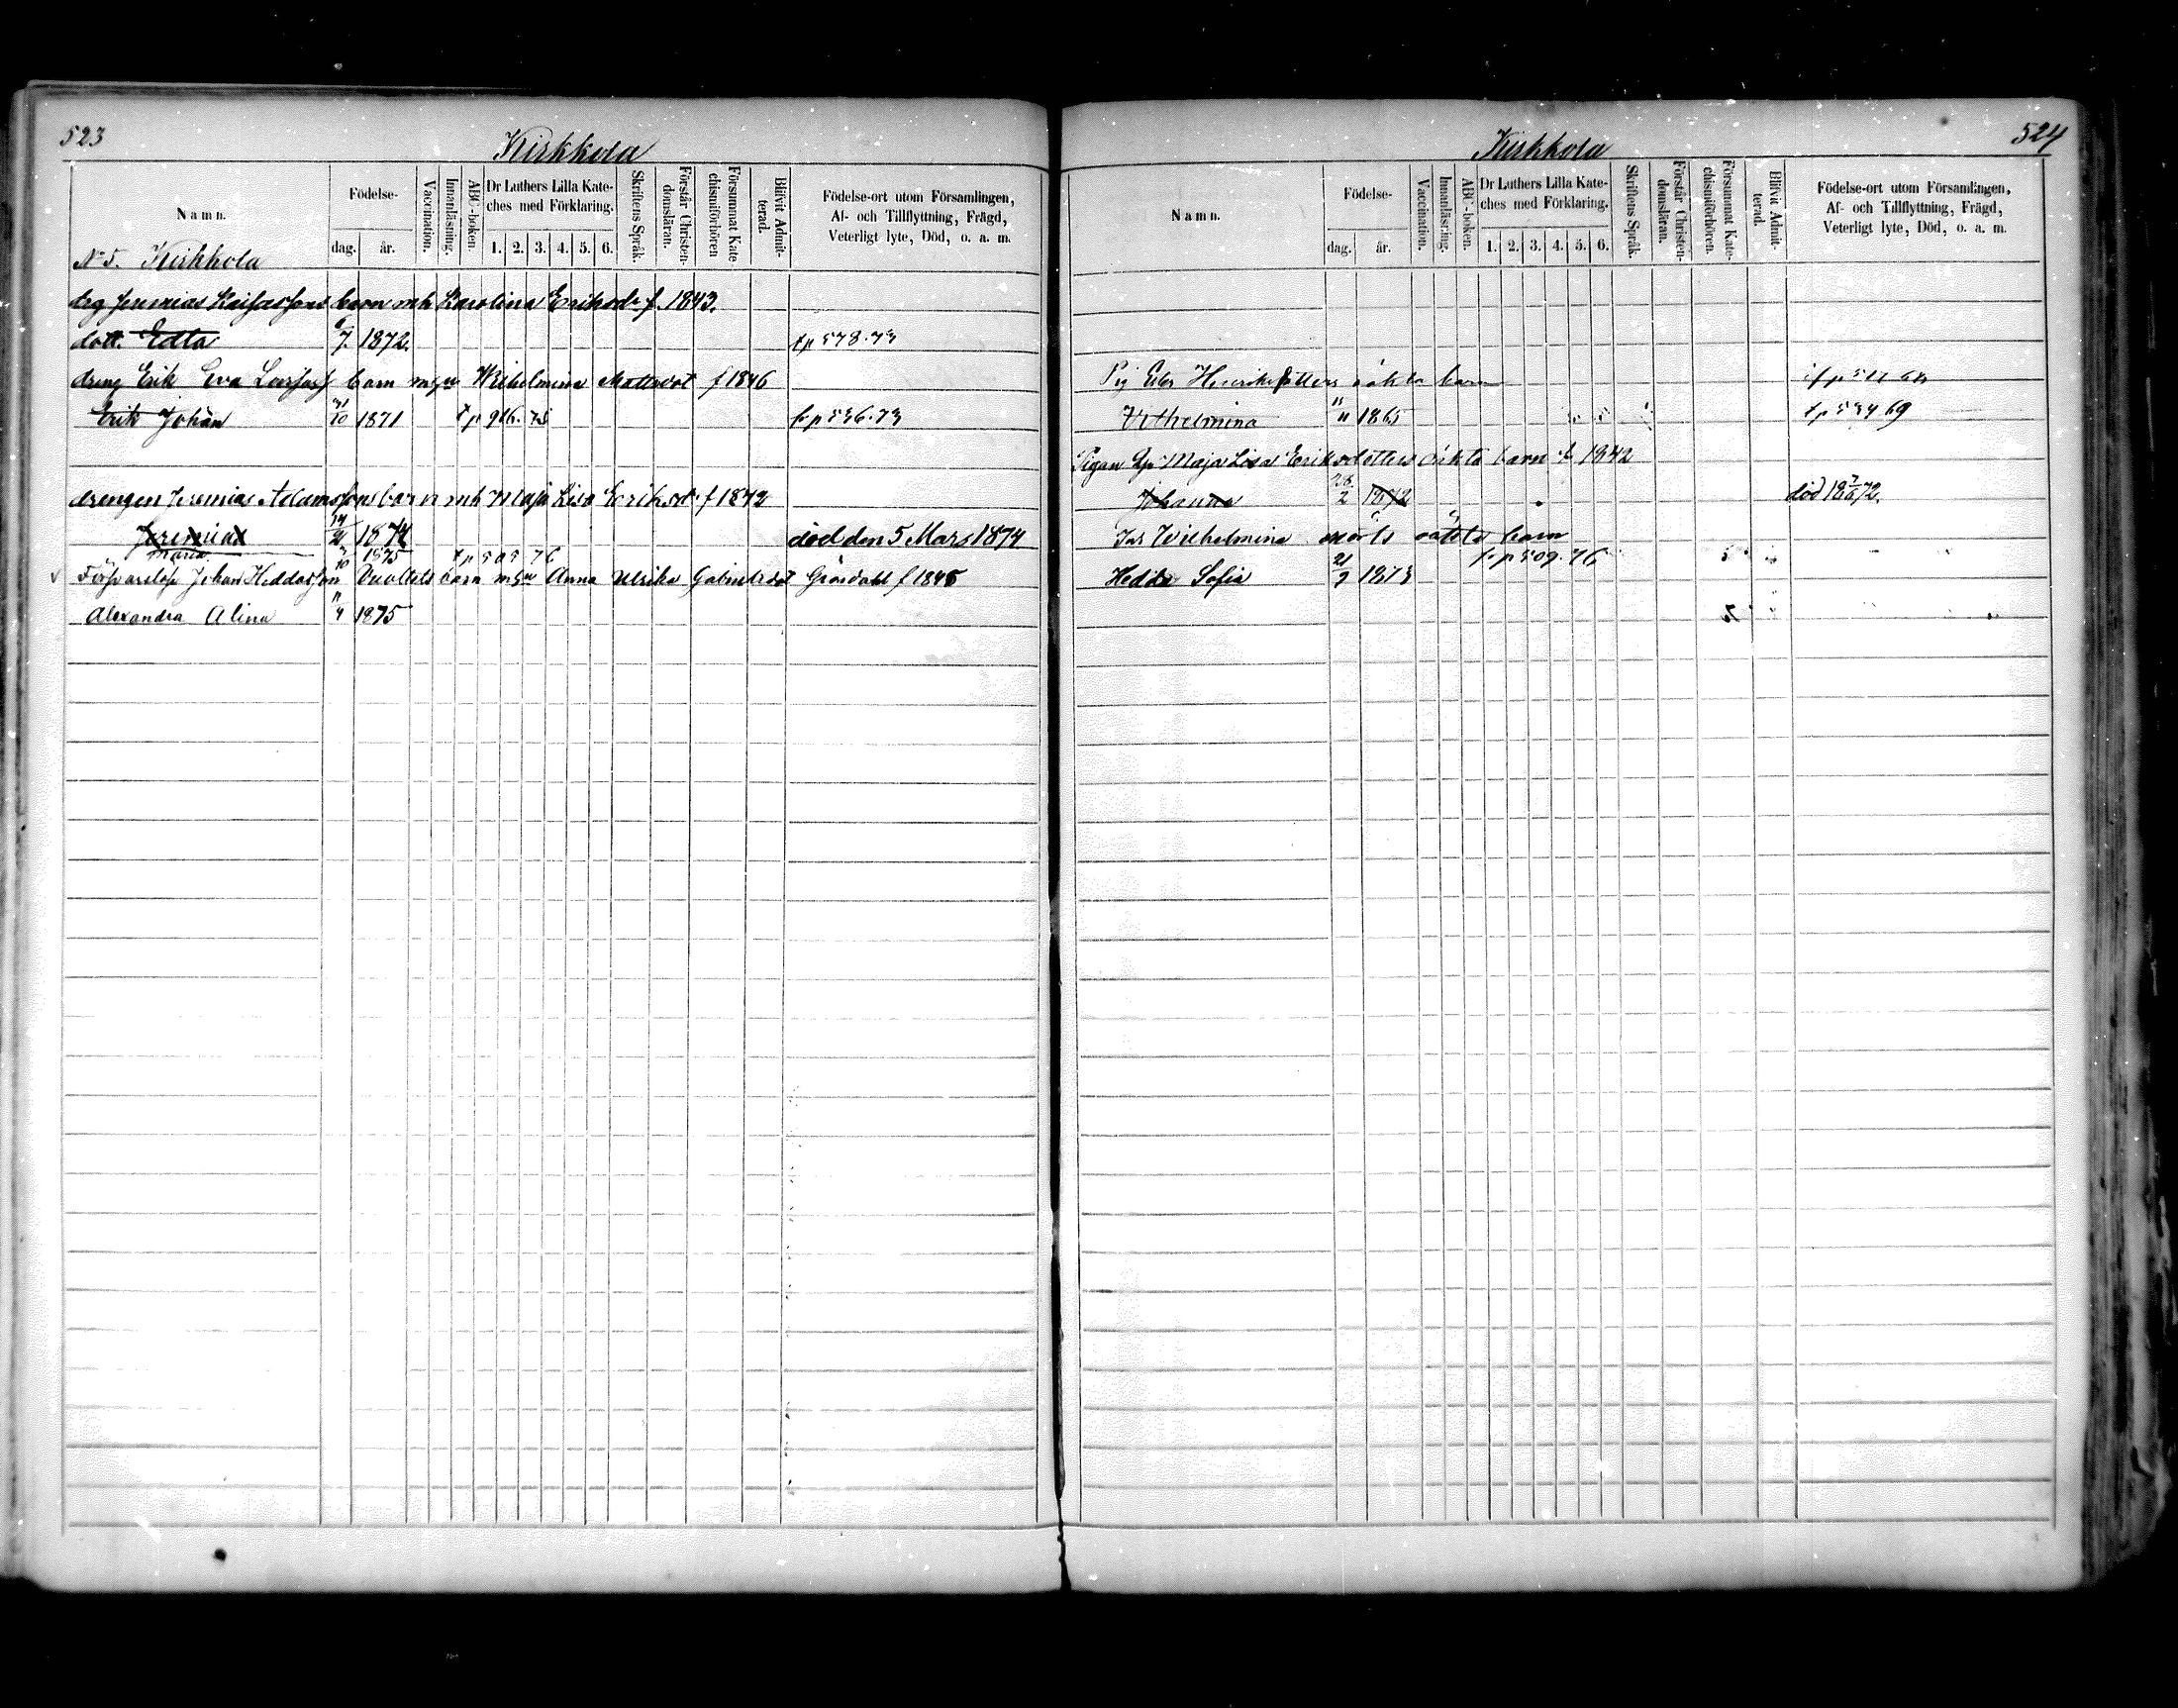 523
Kirkkola
Namn.
Födelse-
dag.
år.
Vaccination.
Innanläsning.
ABC-boken.
Dr Luthers Lilla Kate-
ches med Förklaring.
1. 2. 3. 4. 5. 6.
Skriftens Språk.
Förstår Christen-
domsläran.
Försummat Kate
chismiförhören
Blifvit Admit-
terad.
Födelse-ort utom Församlingen,
Af- och Tillflyttning, Frägd,
Veterligt lyte, Död, o. a. m.
No 5. Kirkkola
drg Jeremias barn mh Karolina Eriksdr f. 1843.
dott. Edla 6/7. 1872. fp 578.73
dreng Erik Eva barn mhu Wilhelmina Mattsdot f 1846
Erik Johan 31/10 1871 fp 916. 75 fp 536.73
drengen Jeremias Adamssons barn mh Maja Lisa Eriksdr f 1842
Jeremias 14/2 1874 död den 5 Mars 1874
Maria /10 1875 fp 505 76
Johan Heddasson barn mhu Anna Ulrika Gabrielsdot Gröndahl f 1845
Alexandra Alina 11/4 1875
524
Kirkkola
Namn.
Födelse-
dag.
år.
Vaccination.
Innanläsning.
ABC-boken.
Dr Luthers Lilla Kate-
ches med Förklaring.
1. 2. 3. 4. 5. 6.
Skriftens Språk.
Förstår Christen-
domsläran.
Försummat Kate-
chismiförhören.
Blifvit Admit-
terad.
Födelse-ort utom Församlingen,
Af- och Tillflyttning, Frägd,
Veterligt lyte, Död, o. a. m.
Pig Henriksdotters oäkta barn
Vilhelmina 11/11 1865 fp 534 69
Pigan Maja Lisa Eriksdotters oäkta barn f 1842
Johanna 26/2 1872 död 18 7/6 72.
Wilhelmina oäkta barn
Hedda Sofia 21/9 1873 fp 509. 76